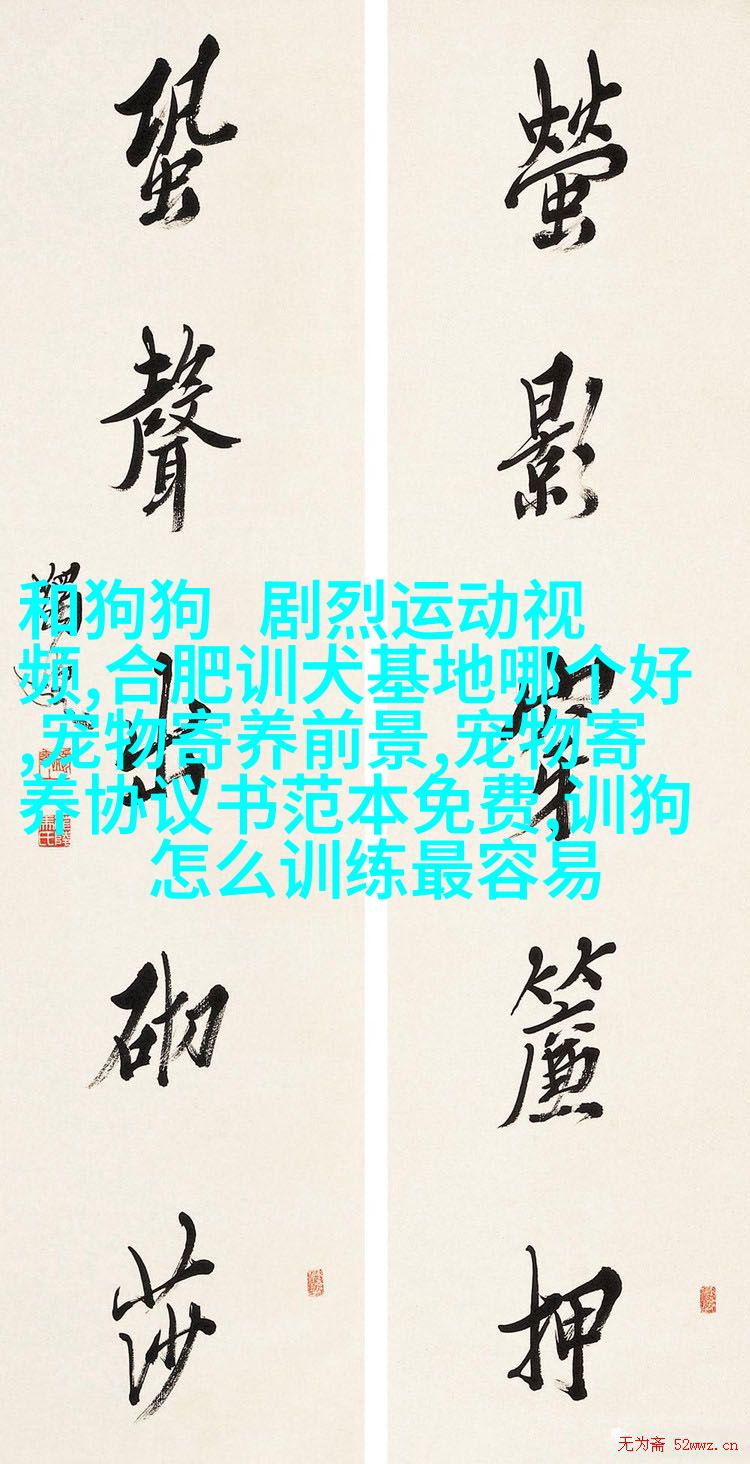 螢影穿簾押
蛩聲砌莎
和狗狗 剧烈运动视
频,合肥训犬基地哪个好
,宠物寄养前景,宠物寄
养协议书范本免费,训狗
怎么训练最容易
无为斋 52wwz.cn